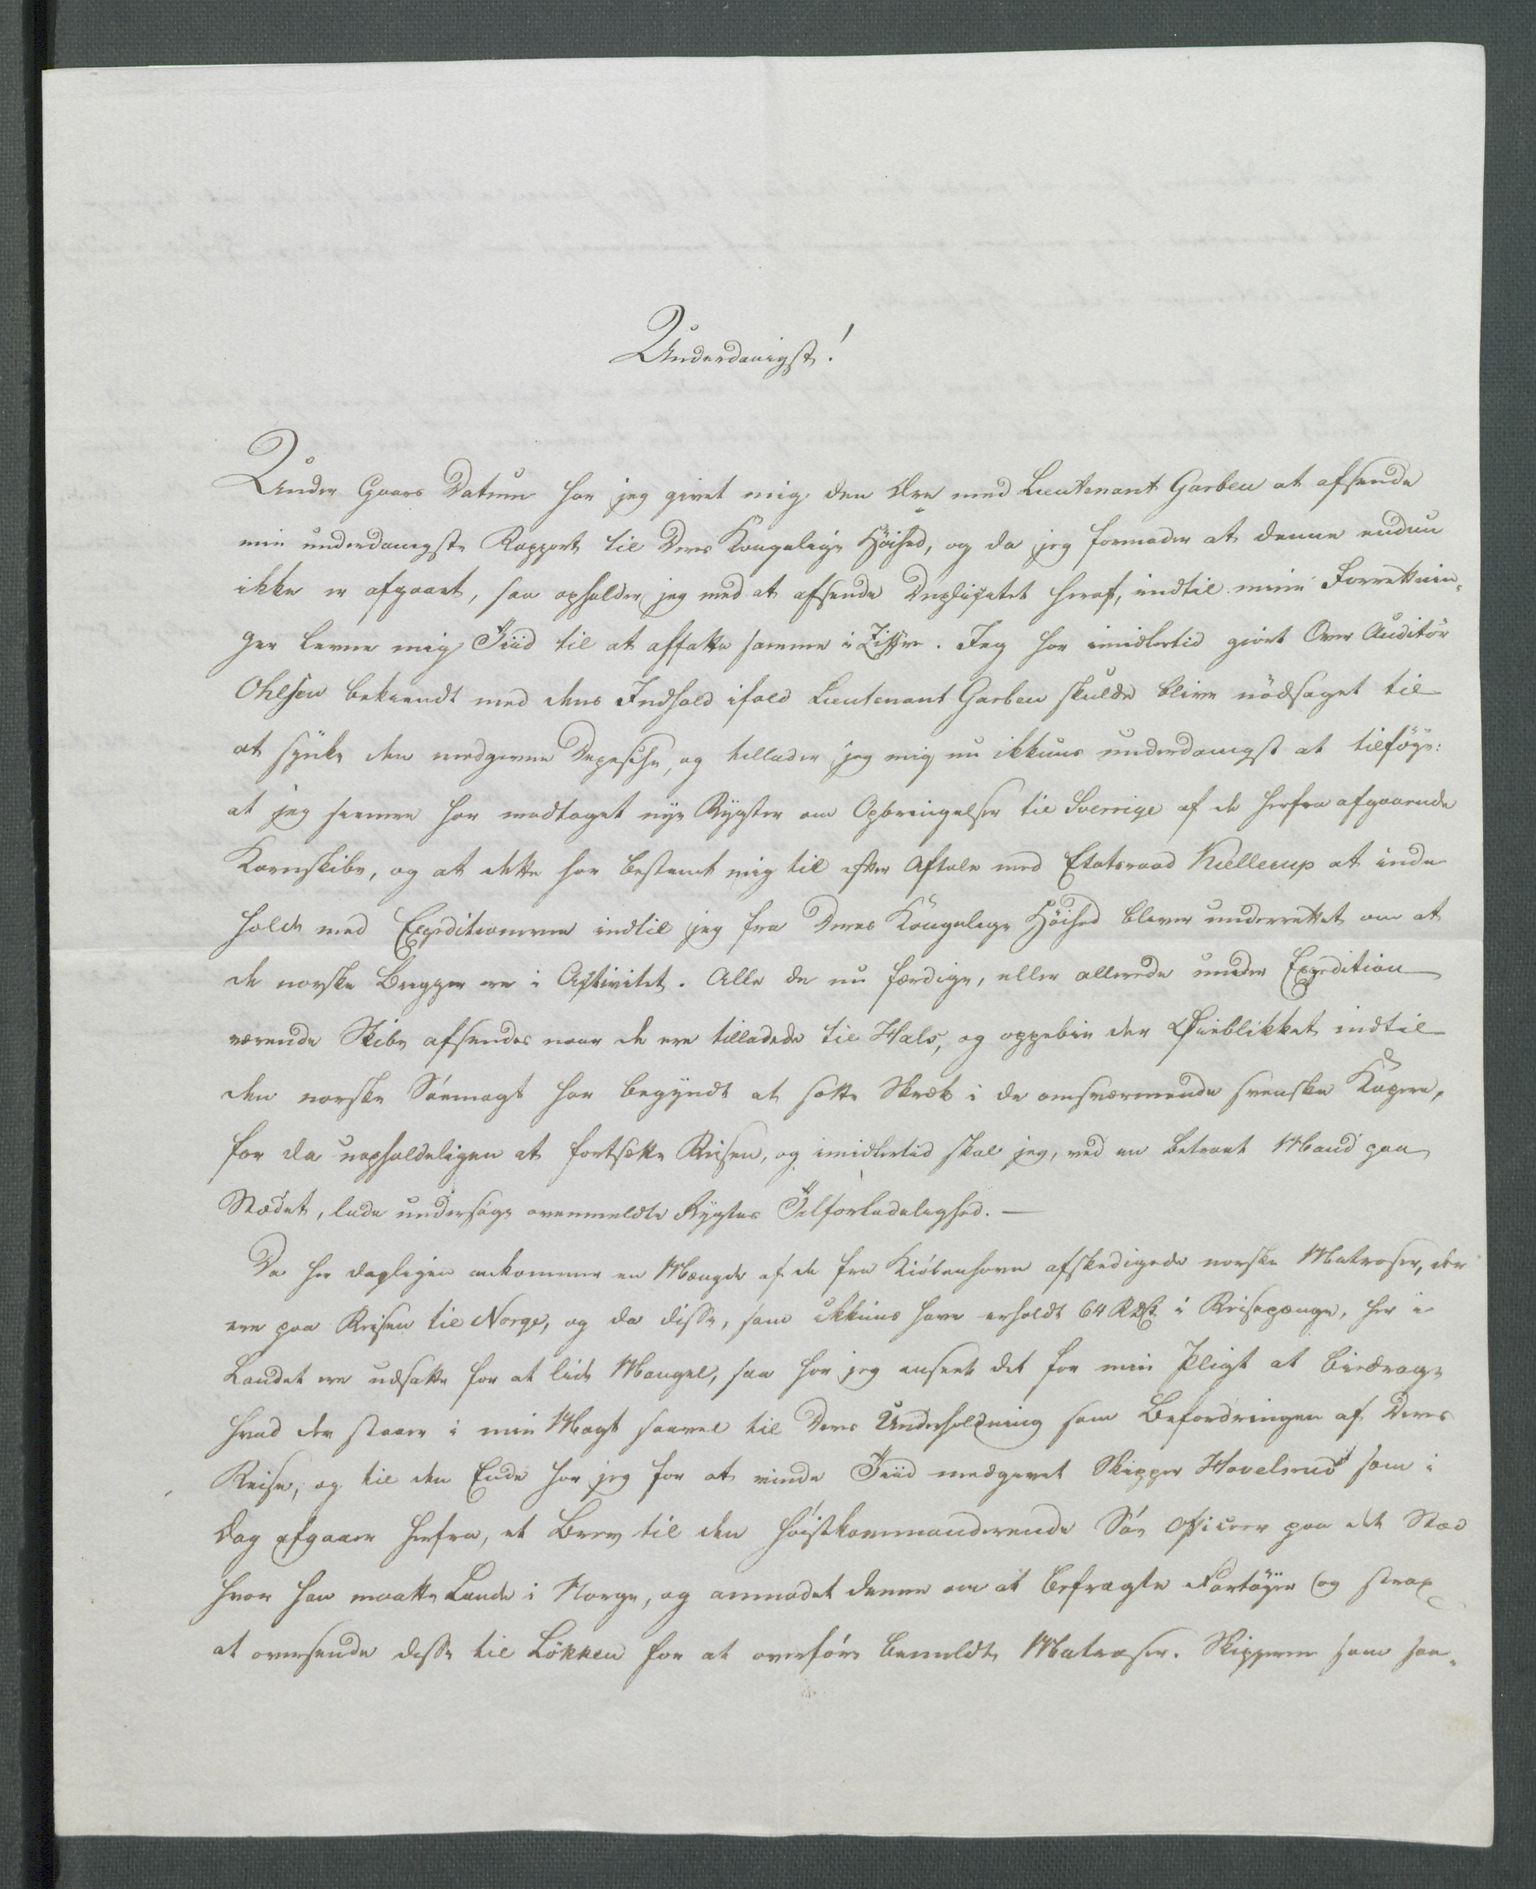 Underdanigst!
Under Gaars Datum har jeg givet mig den Ære med Lieutenant Garben at afsende
min underdanigste Rapport til Deres Kongelige Höihed, og da jeg formoder at denne endnu
ikke er afgaaet, saa opholder jeg med at afsende Duplicatet heraf, indtil mine Forretnin-
ger levne mig Tiid til at affatte samme i Ziffre. Jeg har imidlertid giort Over Auditör
Ohlsen bekiendt med dens Indhold ifald Lieutenant Garben skulde blive nödsaget til
at synke den medgivne Depesche, og tillader jeg mig nu ikkuns underdanigst at tilföye:
at jeg har modtaget nye Rygter om Opbringelser til Sverrige af de herfra afgaaende
Kornskibe, og at dette har bestemt mig til efter Aftale med Etatsraad Kiellerup at inde
holde med Expeditionerne indtil jeg fra Deres Kongelige Höihed bliver underrettet om at
de norske Brigger ere i Activitet. Alle de nu færdige, eller allerede under Expedition
værende Skibe afsendes naar de ere tilladede til Hals, og oppebie der Öieblikket indtil
den norske Söemagt har begyndt at sætte Skræk i de omsværmende svenske Kapere,
for da uopholdeligen at fortsætte Reisen, og imidlertid skal jeg, ved en betroet Mand paa
Stædet, lade undersöge ovenmeldte Rygtes Tilforladelighed. —
Da her dagligen ankommer en Mængde af de fra Kiöbenhavn afskedigede norske Matroser, der
ere paa Reisen til Norge, og da disse, som ikkuns have erholdt 64 Rdlr i Reisepenge, her i
Landet ere udsatte for at lide Mangel, saa har jeg anseet det for min Pligt at bidrage
hvad der staaer i min Magt saavel til Deres Underholdning som Befordringen af Deres
Reise, og til den Ende har jeg for at vinde Tiid medgivet Skipper Hovelrud som i
Dag afgaaer herfra, et Brev til den höistkommanderende Söe Officeer paa det Sted
hvor han maatte Lande i Norge, og anmodet denne om at befragte Fartöyer og strax
at oversende disse til Lökken for at overföre bemeldte Matroser. Skipperne som saa-